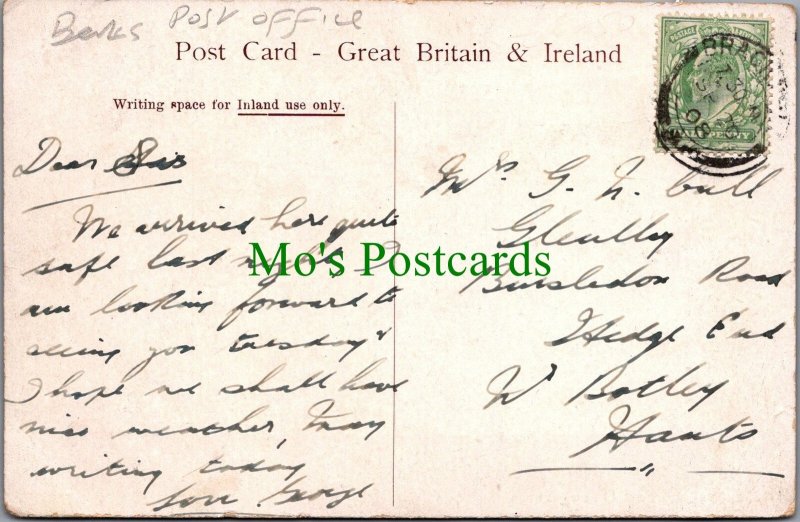 Berks Post Office
Post Card - Great Britain & Ireland
Writing space for Inland use only.
Dear Sis
We arrived here quite
safe last night I
am looking forward to
seeing you tuesday &
I hope we shall have
nice weather, May
writing today
love George
Mrs G. N. Cull
Bursledon Road
Hedge End
Nr Botley
Hants
BRACK
08
HALFPENNY
POSTAGE
Mo's Postcards